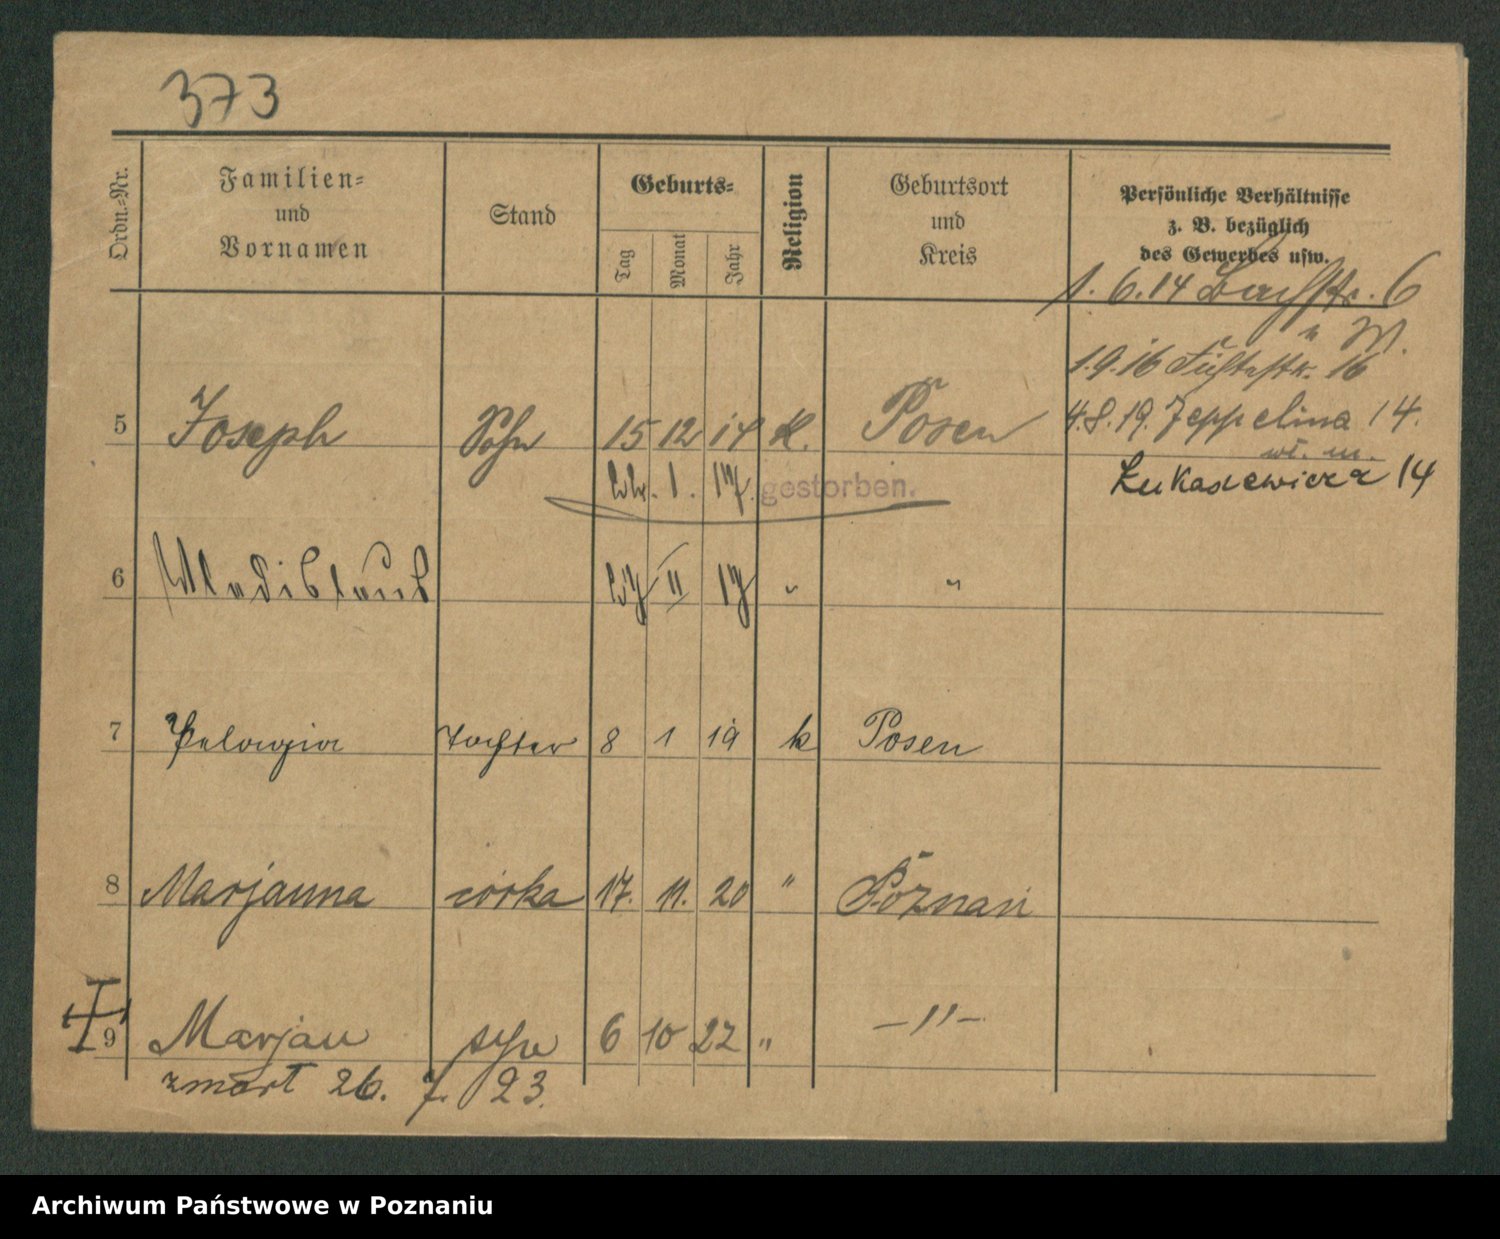 373
Ordn.-Nr.
Familien-
und
Vornamen
Stand
Geburts-
Tag
Monat
Jahr
Religion
Geburtsort
und
Kreis
Persönliche Verhältnisse
z. B. bezüglich
des Gewerbes usw.
1. 6. 14 Bachstr. 6
1. 9. 16 16
5 Joseph Sohn 15 12 14 K. Posen
4. 8. 19. Zeppelina 14.
wł. m.
Łukasiewicza 14
1. 17. gestorben.
6 Wladislaus II 17 " "
7 Pelagia Tochter 8 1 19 k Posen
8 Marjanna córka 17. 11. 20 " Poznań
9 Marjan syn 6 10 22 " -"-
zmart 26. 7. 23.
Archiwum Państwowe w Poznaniu